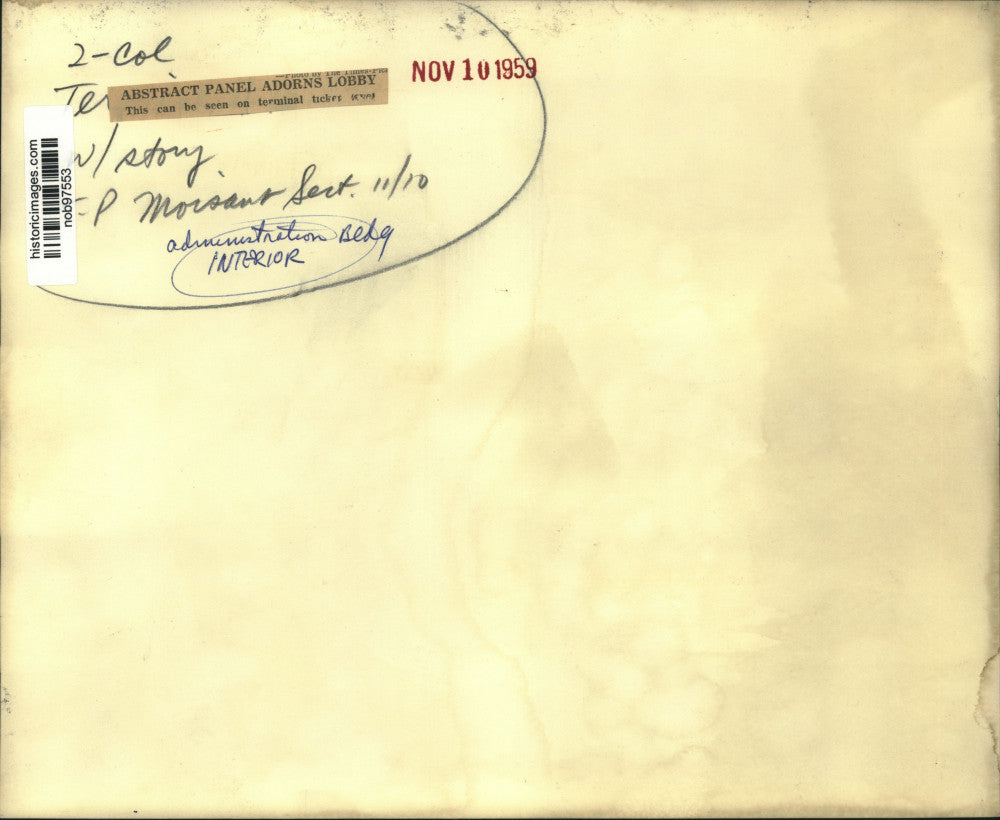 2-Col
NOV 10 1959
—Photo by The Times-Pic
Ter
ABSTRACT PANEL ADORNS LOBBY
This can be seen on terminal ticket
w/ story
T-P Moisant Sect. 11/10
administration Bldg
INTERIOR
historicimages.com
nob97553